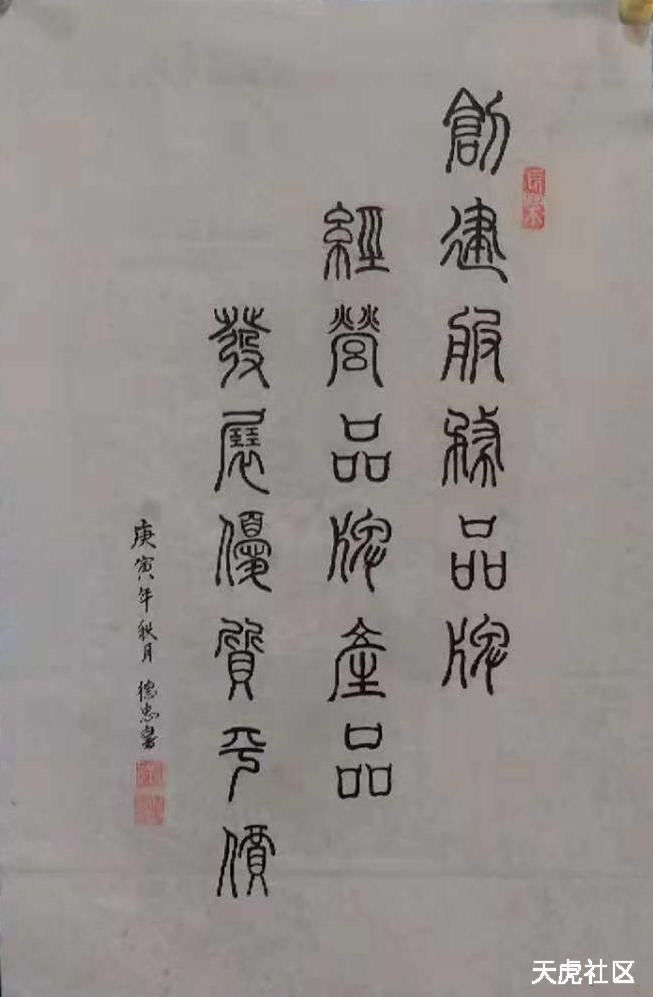 創建服務品牌
經營品牌產品
發展優質平價
庚寅年秋月 德忠書
天虎社区